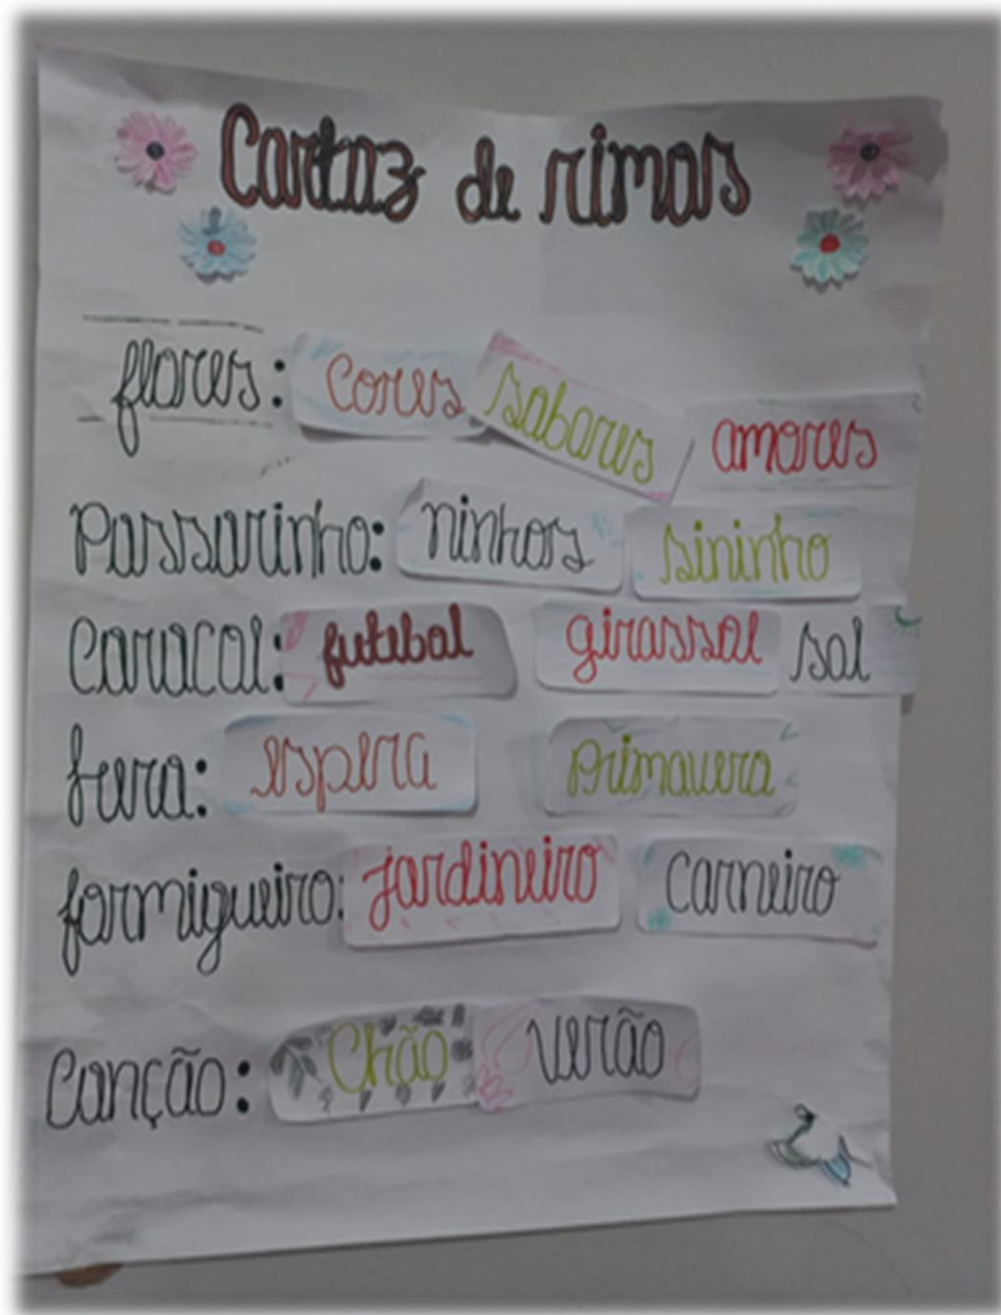 Cartaz de rimas
flores: cores sabores amores
Passarinho: ninhos sininho
Caracol: futebol girassol sol
fera: espera primavera
formigueiro: jardineiro carneiro
Canção: Chão verão